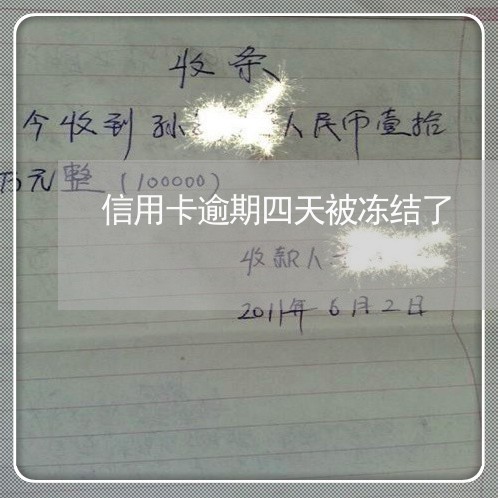 收条
今收到孙 人民币壹拾
万元整（100000）
信用卡逾期四天被冻结了
收款人
2011年6月2日